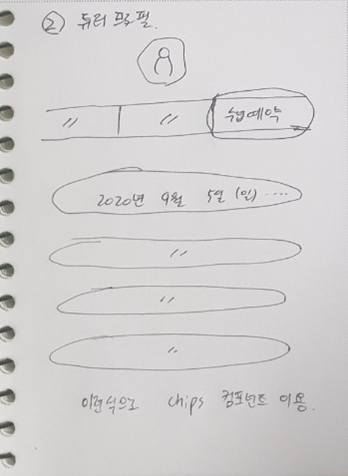 ② 튜터 프로필.
〃 〃 수업예약
2020년 9월 5일 (일) ....
〃
〃
〃
이런식으로 chips 컴포넌트 이용.